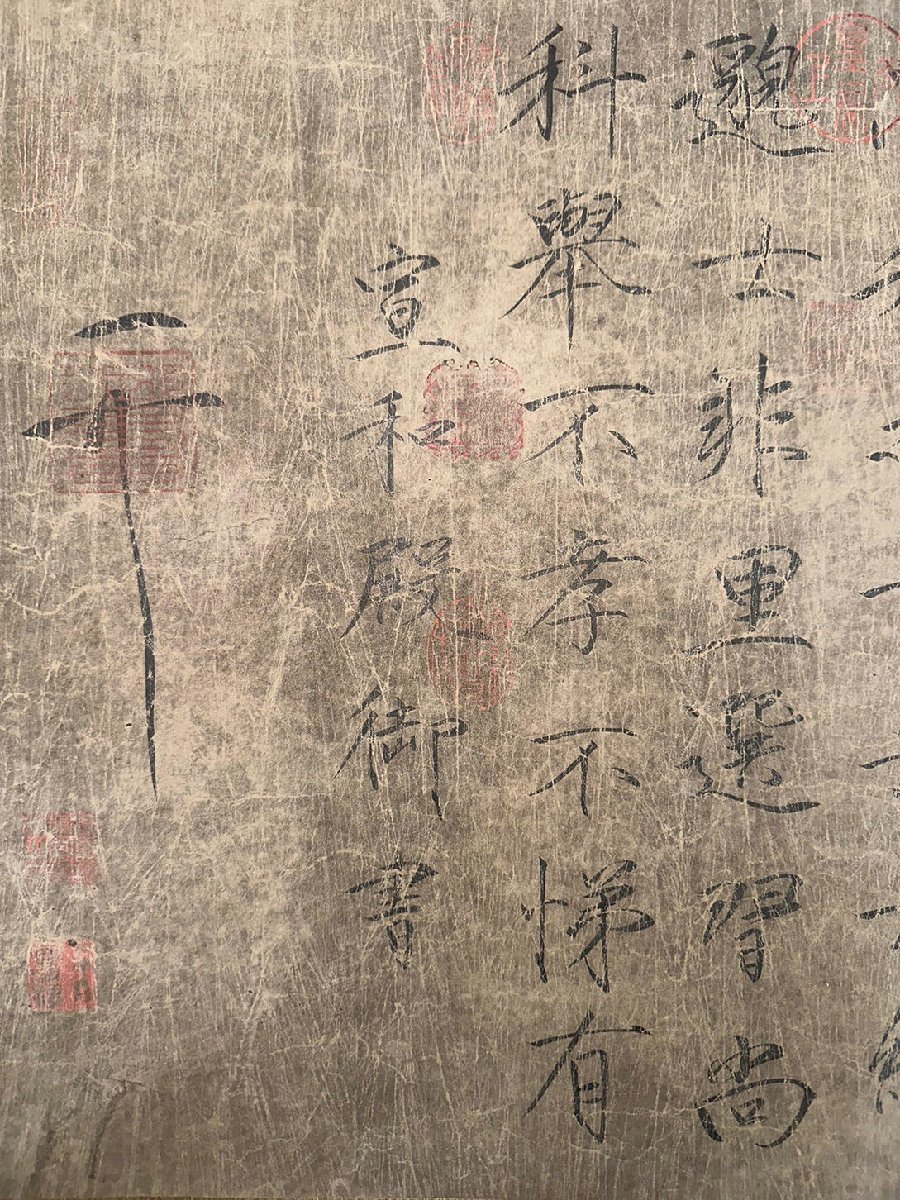 邈士非里選習尚
科舉不孝不悌有
宣和殿御書